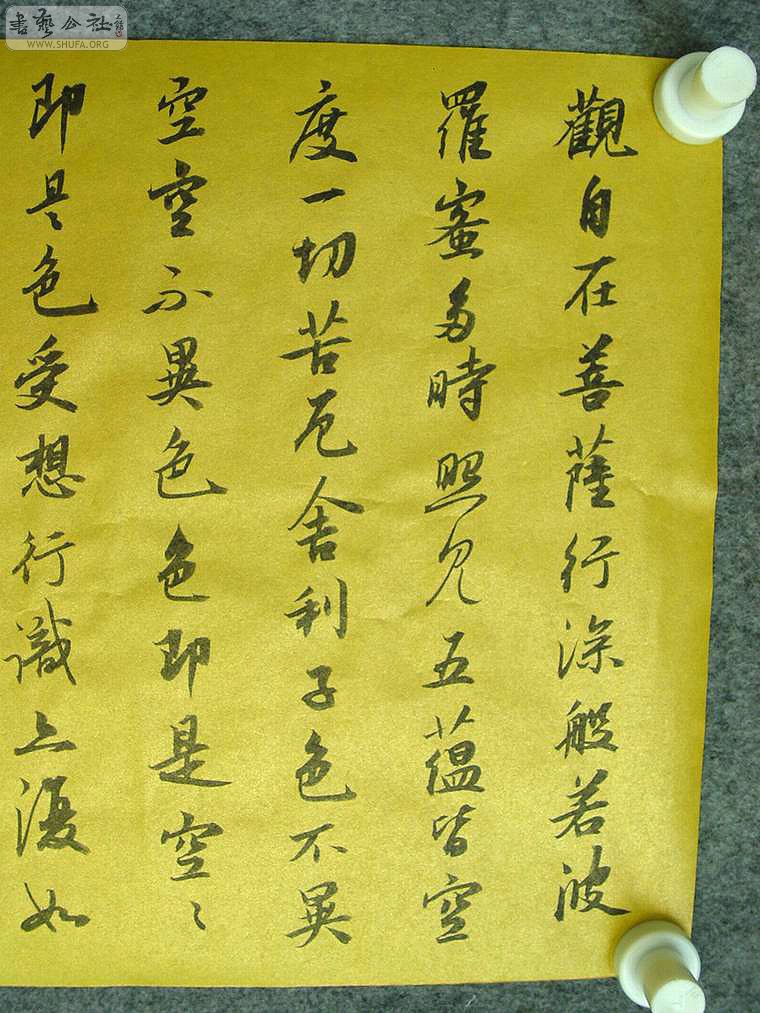 觀自在菩薩行深般若波
羅蜜多時照見五蘊皆空
度一切苦厄舍利子色不異
空空不異色色即是空〻
即是色受想行識亦復如
書藝公社
WWW.SHUFA.ORG